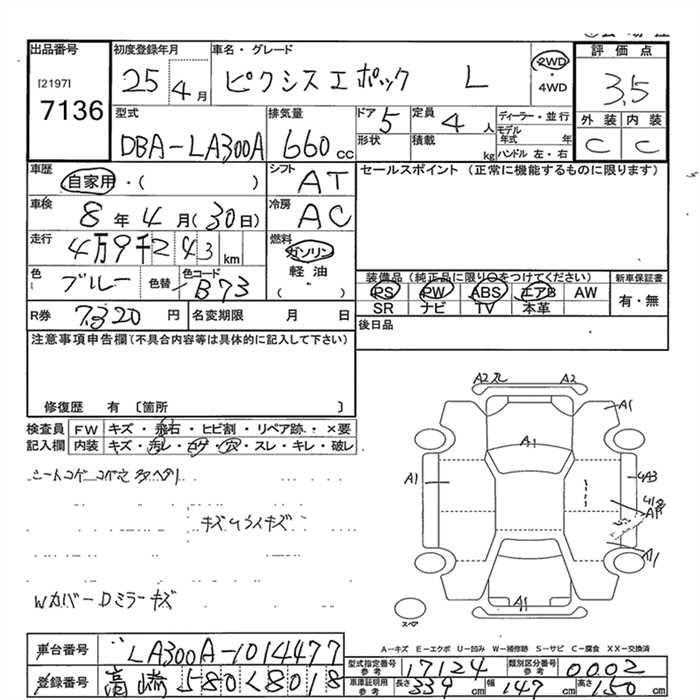 出品番号 初度登録年月 車名・グレード 評価点
[2197] 7136 25 4月 ピクシスエポック L 2WD・4WD 3.5
型式 排気量 ドア 5 定員 4人 ディーラー・並行 外装 内装
DBA-LA300A 660cc 形状 積載 kg モデル年式 年 ハンドル 左・右 C C
車歴 シフト セールスポイント (正常に機能するものに限ります)
自家用・( ) AT
車検 冷房
8年4月(30日) AC
走行 燃料
4万9千243km ガソリン
軽油
色 色替 色コード ( ) 装備品 (純正品に限り○をつけてください) 新車保証書
ブルー B73 PS PW ABS エアB AW 有・無
SR ナビ TV 本革
R券 7,320円 名変期限 月 日 後日品
注意事項申告欄(不具合内容等は具体的に記入して下さい)
修復歴 有 〔箇所 〕
検査員 FW キズ・飛石・ヒビ割・リペア跡・×要
記入欄 内装 キズ・汚レ・コゲ・穴・スレ・キレ・破レ
A2 A2
A1
A1
A1 4A3
A1
A1
キズ
Wカバー Dミラーキズ
A1
スペア
A-キズ E-エクボ U-凹み W-補修跡 S-サビ C-腐食 XX-交換済
車台番号 LA300A-1014477
登録番号 高崎 580く8018
型式指定番号 参考 17124 類別区分番号 参考 0002
車庫証明用 参考 長さ 339cm 幅 147cm 高さ 150cm